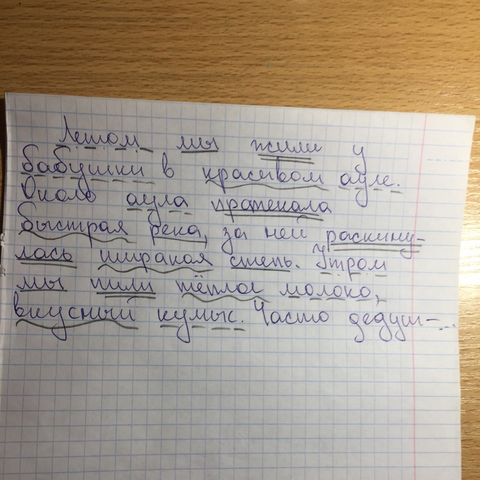 Летом мы жили у
бабушки в красивом ауле.
Около аула протекала
быстрая река, за ней раскину-
лась широкая степь. Утром
мы пили тёплое молоко,
вкусный кумыс. Часто дедуш-